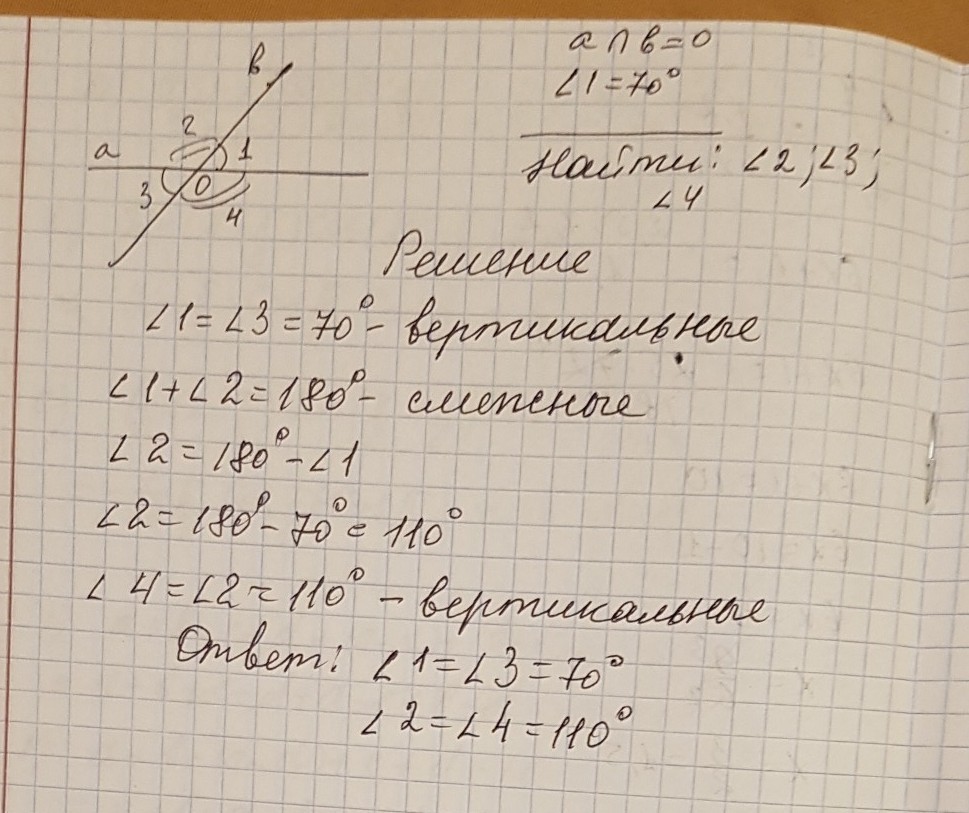 a ∩ b = 0
∠1 = 70°
Найти: ∠2; ∠3;
∠4
b
2
a
1
3
0
4
Решение
∠1 = ∠3 = 70° - вертикальные
∠1 + ∠2 = 180° - смежные
∠2 = 180° - ∠1
∠2 = 180° - 70° = 110°
∠4 = ∠2 = 110° - вертикальные
Ответ: ∠1 = ∠3 = 70°
∠2 = ∠4 = 110°